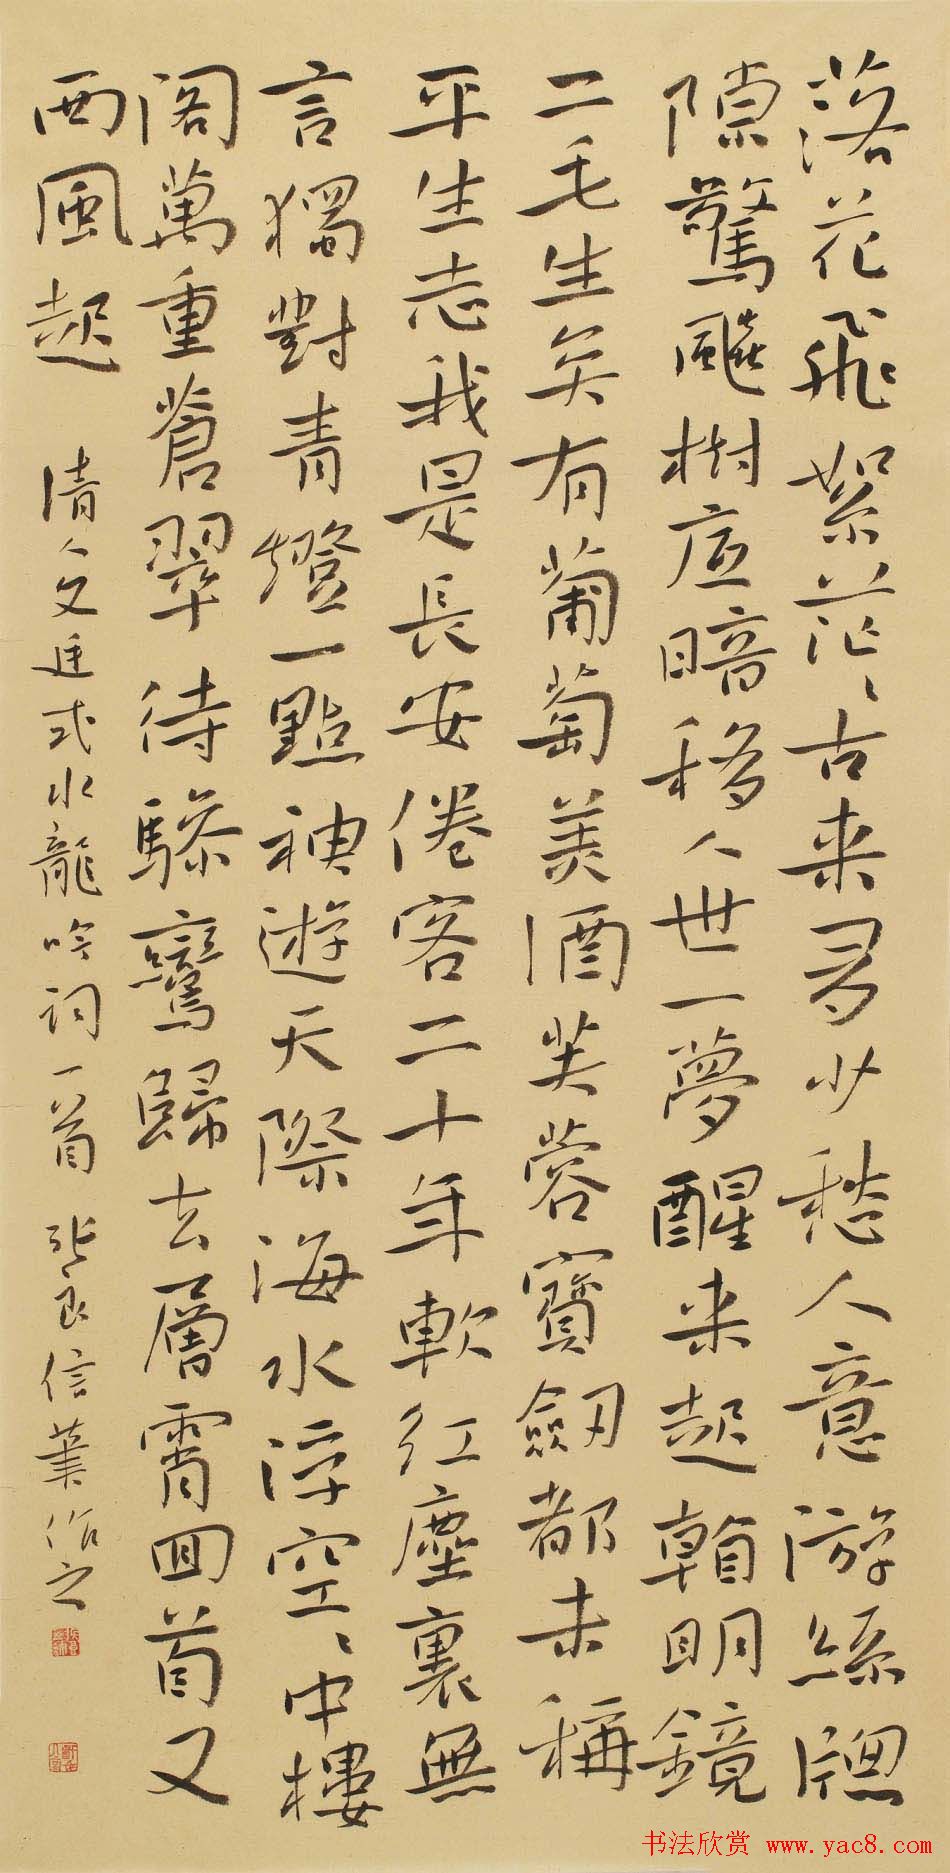 落花飛絮茫〻古来多少愁人意游絲牕
隙驚飈樹底暗移人世一夢醒来起看明鏡
二毛生矣有葡萄美酒芙蓉寶劒都未稱
平生志我是長安倦客二十年軟红塵裏無
言獨對青燈一點神遊天際海水浮空〻中樓
閣萬重蒼翠待驂鸞歸去層霄回首又
西風起 清人文廷式水龍吟詞一首 張良信
书法欣赏 www.yac8.com